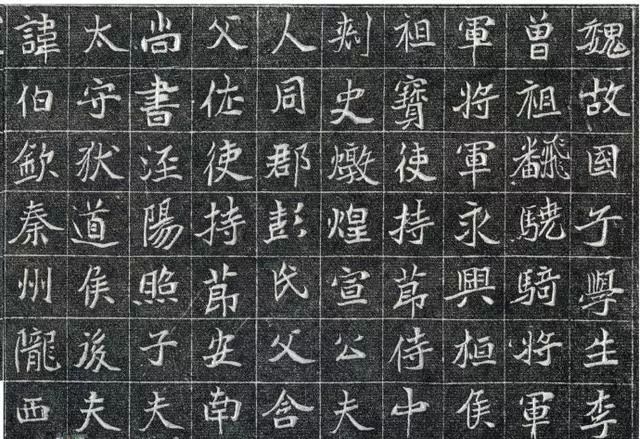 魏故國子學生李
曾祖飜驍騎將軍
軍將軍永興桓侯
祖寶使持節侍中
刺史燉煌宣公夫
人同郡彭氏父含
父佐使持節安南
尚書涇陽照子夫
太守狄道侯後夫
諱伯欽秦州隴西